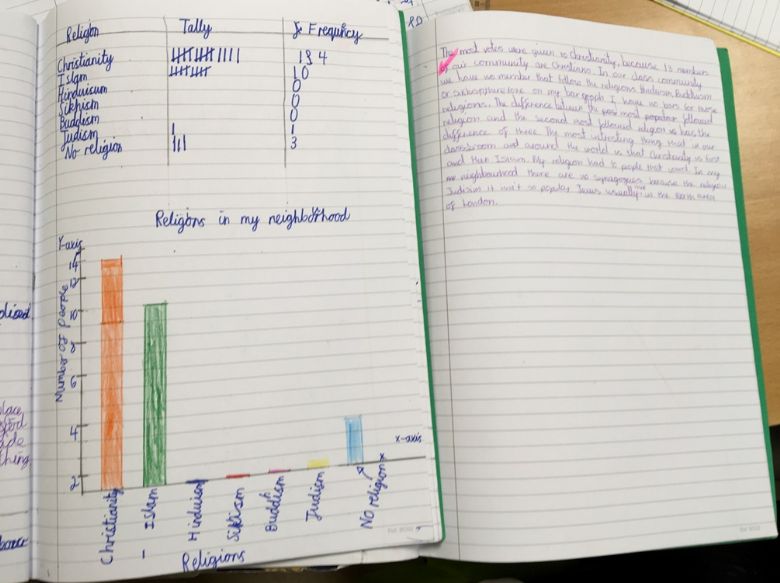 Religion Tally Frequncy
Christianity 14
Islam 10
Hinduisum 0
Sikhism 0
Buddism 0
Judism 1
No religion 3
Religions in my neighborhood
Y-axis
14
12
10
8
6
4
2
Number of people
x-axis
Christianity
Islam
Hinduism
Sikhism
Buddhism
Judism
No religion
Religions
The most votes were given to Christianity, because 13 members
of our community are Christians. In our class community
we have no member that follow the religions Hinduism, Buddhism
or Sikhism, therefore on my bar graph I have no bars for those
religions. The difference between the most popular followed
religion and the second most followed religion is has the
difference of three. The most interesting thing that in our
classroom and around the world is that Christianity is first
and then Islam. My religion had 10 people that voted. In my
neighbourhood there are no synagogues because the religion
Judism it isn't so popular, Jews usually in the North area
of London.